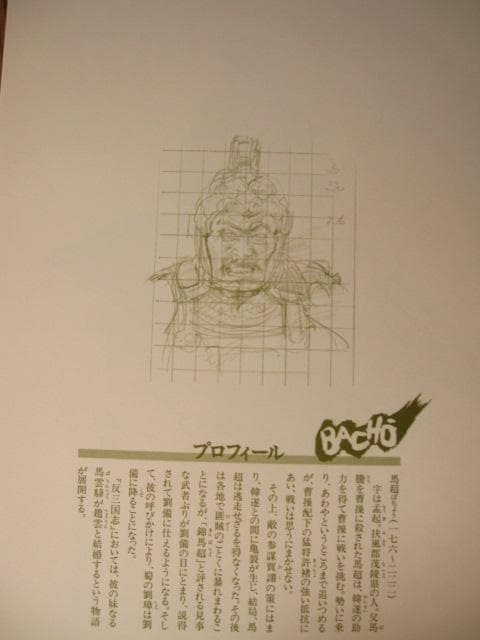 BACHŌ
プロフィール
馬超(一七六~二二二)
字は孟起。扶風郡茂陵県の人。父馬
騰を曹操に殺された馬超は、韓遂の助
力を得て曹操に戦いを挑む。勢いに乗
り、あわやというところまで追いつめる
が、曹操配下の猛将許褚の強い抵抗に
あい、戦いは思うにまかせない。
その上、敵の参謀賈詡の策にはま
り、韓遂との間に亀裂が生じ、結局、馬
超は逃走せざるを得なくなった。その後
は各地で匪賊のごとくに暴れまわるこ
とになるが、「錦馬超」と評される見事
な武者ぶりが劉備の目にとまり、説得
されて劉備に仕えるようになる。そし
て、彼の呼びかけにより、蜀の劉璋は劉
備に降ることになった。
『反三国志』においては、彼の妹なる
馬雲騄が趙雲と結婚するという物語
が展開する。